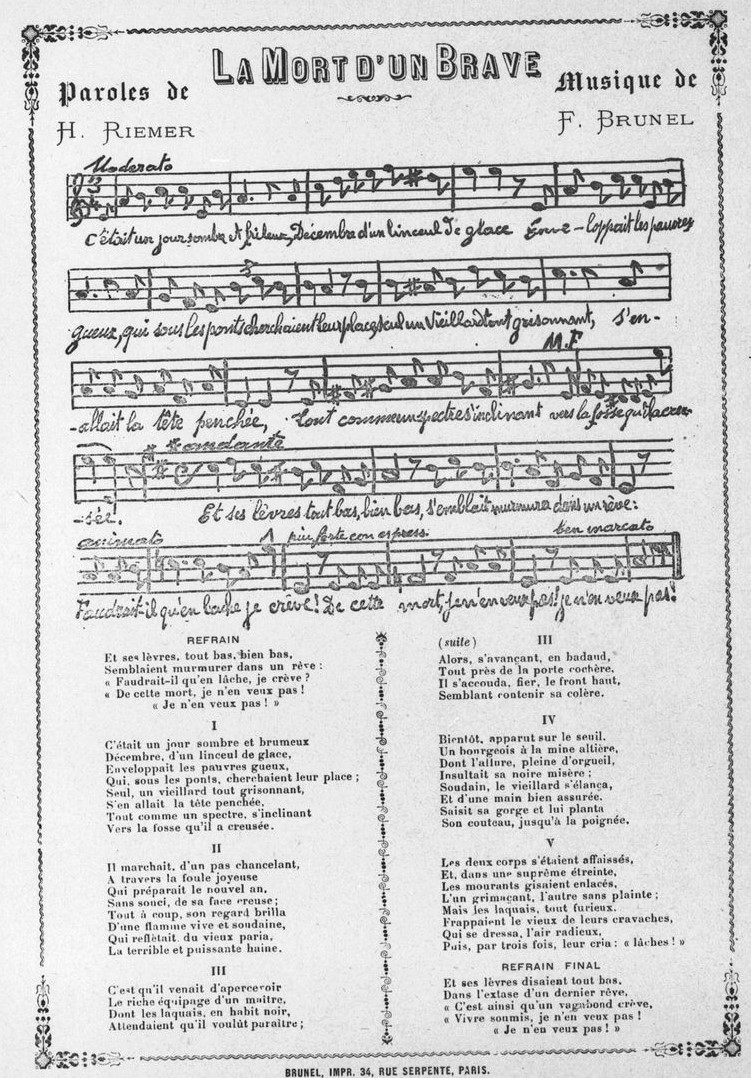 LA MORT D'UN BRAVE
Paroles de
H. RIEMER
Musique de
F. BRUNEL
Moderato
C'était un jour sombre et frileux, Décembre d'un linceul de glace Enve-loppait les pauvres
3
gueux, qui sous les ponts cherchaient leur place, seul un Vieillard tout grisonnant, s'en-
M.F
-allait la tête penchée, tout comme un spectre s'inclinant vers la fosse qu'il a creu-
andante
-sée! Et ses lèvres tout bas, bien bas, s'emblait murmurer dans un rêve:
animato più forte con espress. ben marcato
Faudrait-il qu'en lache je crève! De cette mort, je n'en veux pas! je n'en veux pas!
REFRAIN
Et ses lèvres, tout bas, bien bas,
Semblaient murmurer dans un rêve :
« Faudrait-il qu'en lâche, je crève ?
« De cette mort, je n'en veux pas !
« Je n'en veux pas ! »
I
C'était un jour sombre et brumeux
Décembre, d'un linceul de glace,
Enveloppait les pauvres gueux,
Qui, sous les ponts, cherchaient leur place ;
Seul, un vieillard tout grisonnant,
S'en allait la tête penchée,
Tout comme un spectre, s'inclinant
Vers la fosse qu'il a creusée.
II
Il marchait, d'un pas chancelant,
A travers la foule joyeuse
Qui préparait le nouvel an,
Sans souci, de sa face creuse ;
Tout à coup, son regard brilla
D'une flamme vive et soudaine,
Qui reflétait, du vieux paria,
La terrible et puissante haine.
III
C'est qu'il venait d'apercevoir
Le riche équipage d'un maître,
Dont les laquais, en habit noir,
Attendaient qu'il voulût paraître ;
(suite) III
Alors, s'avançant, en badaud,
Tout près de la porte cochère,
Il s'accouda, fier, le front haut,
Semblant contenir sa colère.
IV
Bientôt, apparut sur le seuil.
Un bourgeois à la mine altière,
Dont l'allure, pleine d'orgueil,
Insultait sa noire misère ;
Soudain, le vieillard s'élança,
Et d'une main bien assurée,
Saisit sa gorge et lui planta
Son couteau, jusqu'à la poignée.
V
Les deux corps s'étaient affaissés,
Et, dans une suprême étreinte,
Les mourants gisaient enlacés,
L'un grimaçant, l'autre sans plainte ;
Mais les laquais, tout furieux,
Frappaient le vieux de leurs cravaches,
Qui se dressa, l'air radieux,
Puis, par trois fois, leur cria : « lâches ! »
REFRAIN FINAL
Et ses lèvres disaient tout bas,
Dans l'extase d'un dernier rêve,
« C'est ainsi qu'un vagabond crève,
« Vivre soumis, je n'en veux pas !
« Je n'en veux pas ! »
BRUNEL, IMPR. 34, RUE SERPENTE, PARIS.